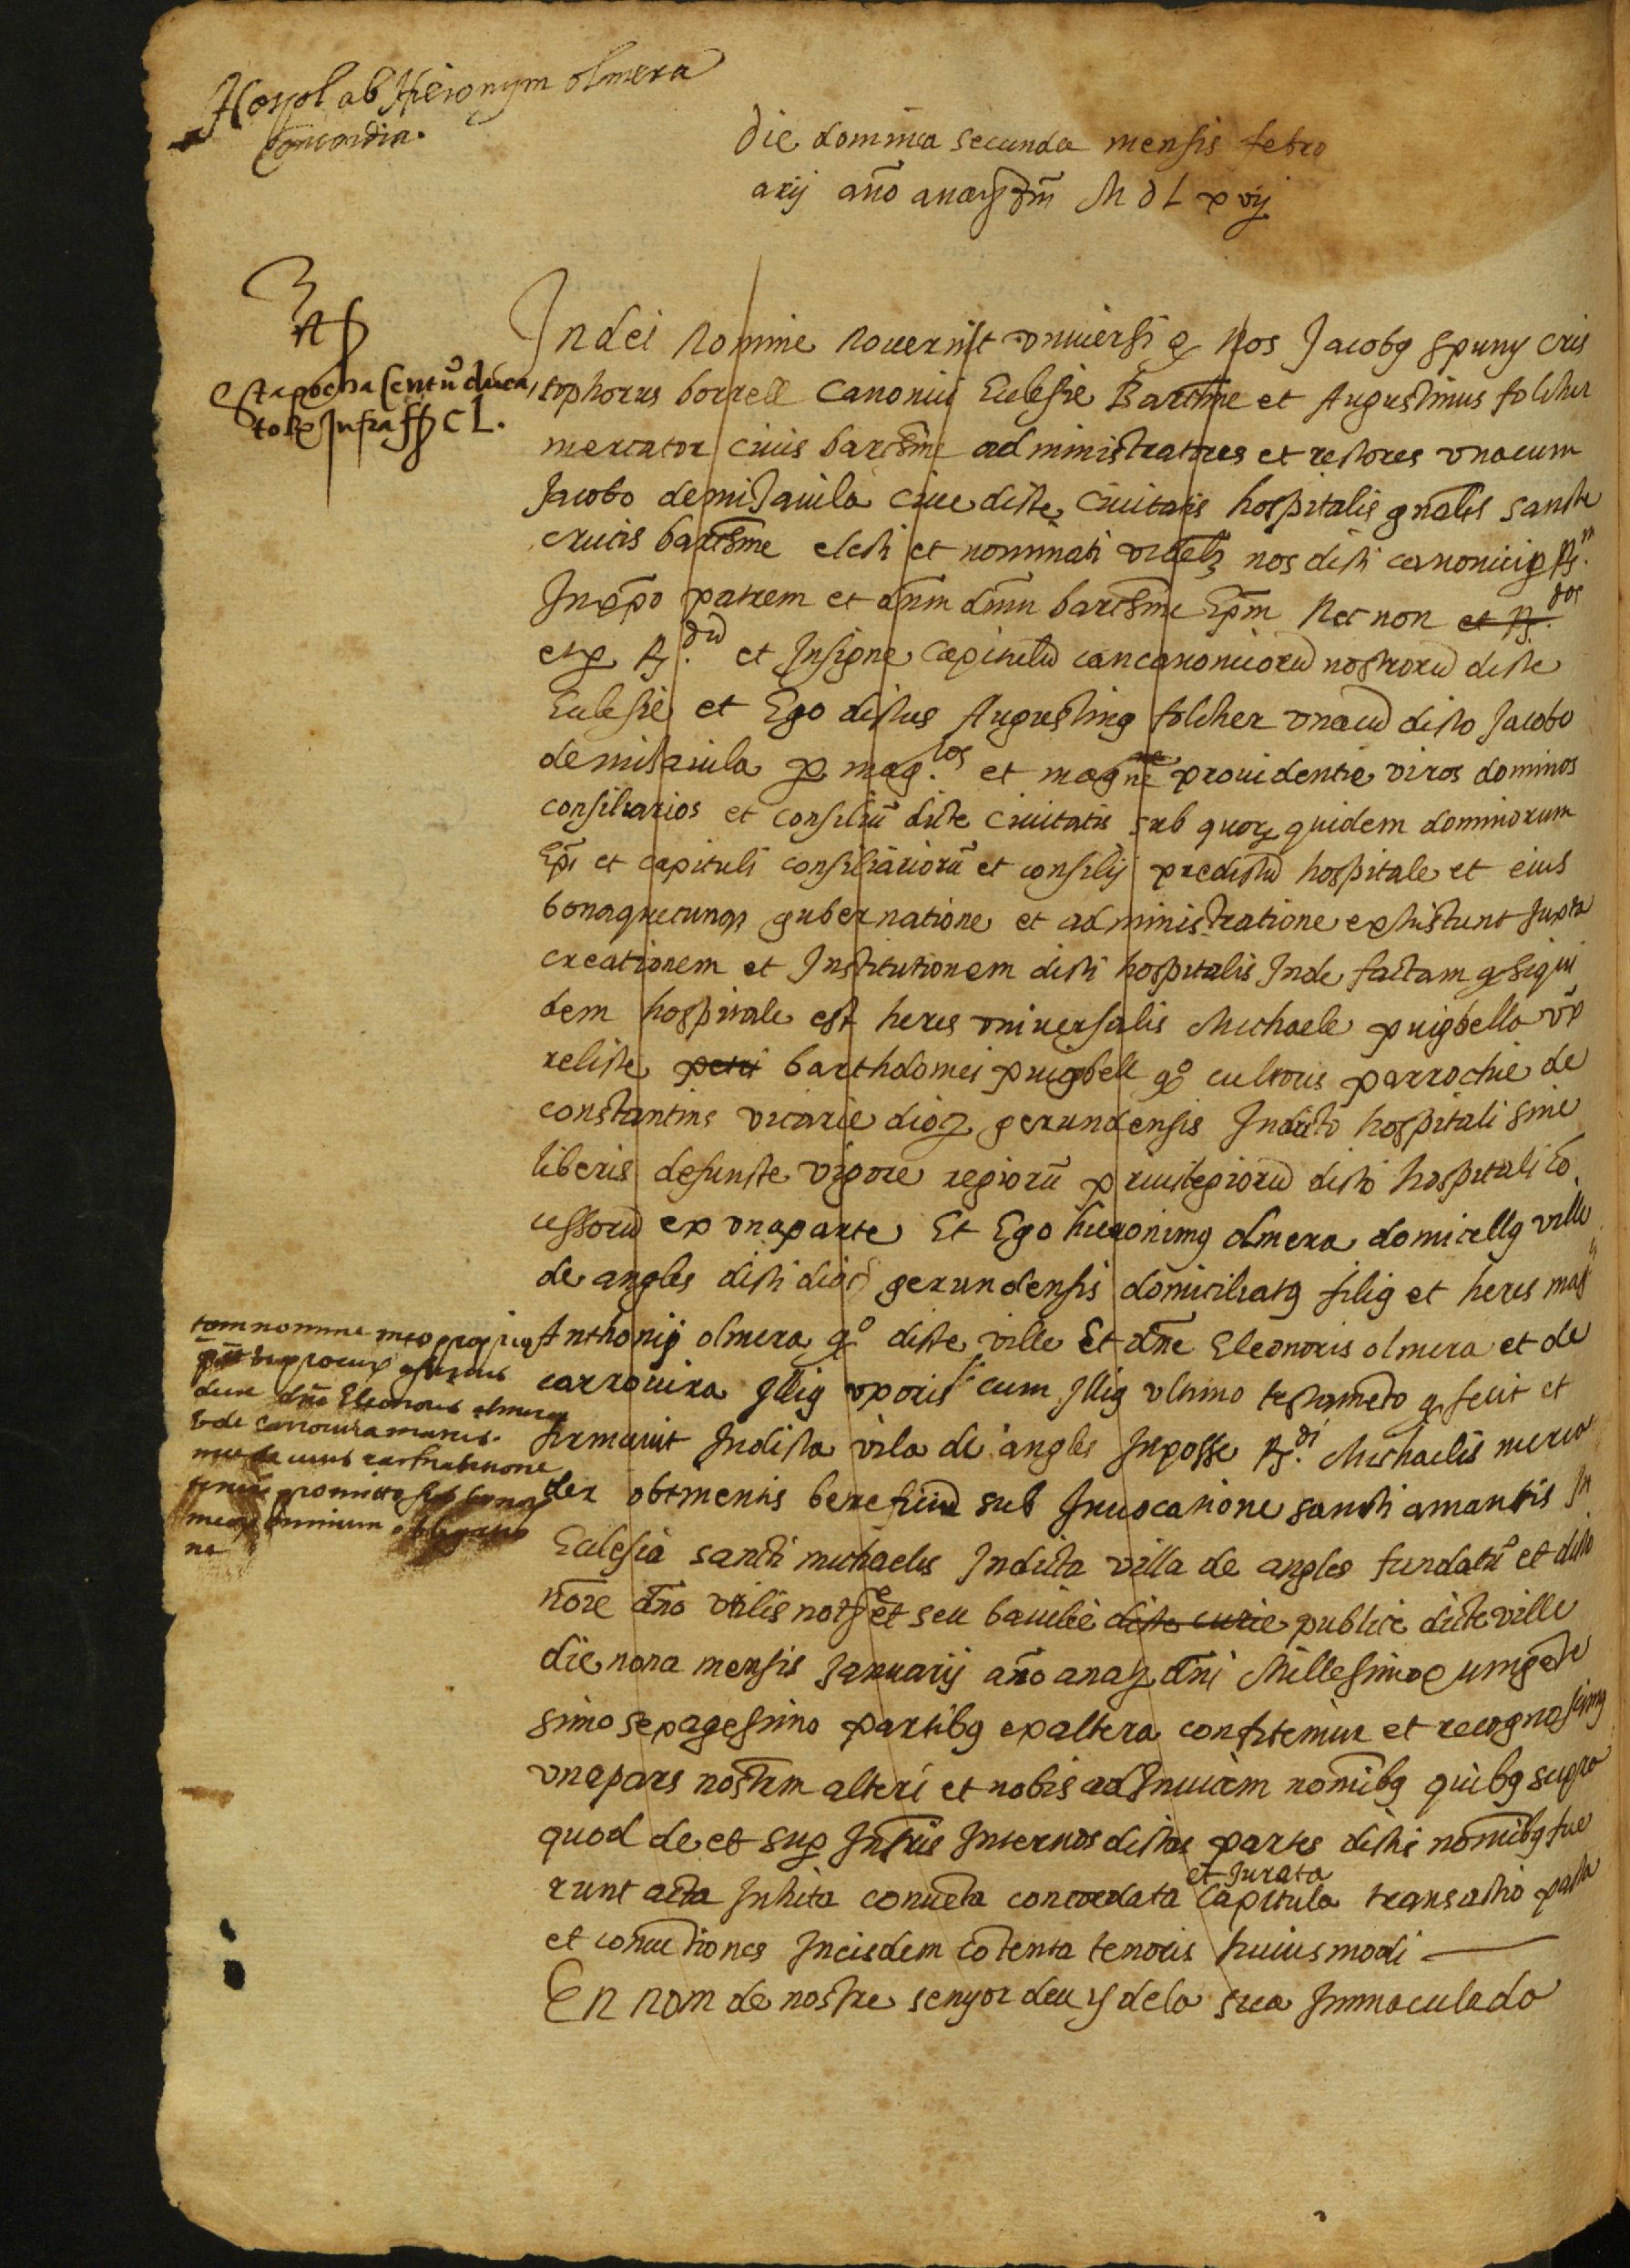 Hospl ab Hieronym olmera
Concordia.
Die dominica secunda mensis febro
arij año a natte dñi M D L x vij
Est apocha sentũ duca
tor Infra CL.
In dei nomine nouerint vniuersi q nos Jacobg spuny cris
tophorus borrell Canonici Eclesie Barchne et Augustinus folcher
mercator ciuis barchne administratores et rectores vnacum
Jacobo demitjauila ciue dicte Ciuitatis hospitalis gnalis sancte
crucis barchne electi et nominati videlz nos dicti canonici p R.m
In xpo patrem et dnm dnm barchne Epm Nec non et R.dos
et p R.du et Insigne Capitulu concanonicoru nostroru dicte
Eclesie et Ego dictus Augusting folcher vnacu dicto Jacobo
demitjauila p mag.cos et magne prouidentie viros dominos
consiliarios et consiliũ dicte Ciuitatis sub quorz quidem dominorum
Epi et capituli consiliariorũ et consilij predictu hospitale et eius
bona quecunqz gubernatione et administratione existunt juxta
creationem et Institutionem dicti hospitalis Inde factam q siqui
dem hospitale est heres vniuersalis Michaele puigbella vx
relicte petri bartholomei puigbell qo cultoris parrochie de
constantins vicarie dioz gerundensis In dicto hospitali sine
liberis defuncte vigore regiorũ priuilegioru dicto hospitali cõ
cessoru ex vna parte Et Ego hieronimg olmera domicellg ville
de angles dicti dioc gerundensis domiciliatg filig et heres mag
Anthonij olmera qo dicte ville Et dñe Eleonoris olmera et de
carrouira illig vxoris cum illig vltimo testameto q fecit et
firmauit In dicta vila de angles In posse R.di Michaelis merca
der obtinentis beneficiu sub Inuocatione sancti amantis In
Eclesia sancti michaelis In dicta villa de angles fundatũ et dicto
noie dno vtilis notrie et seu baiulie dicte curie publice dicte ville
die nona mensis Januarij año a natz dñi Millesimo quingente
simo sexagesimo partibg ex altera confitemur et recognoscimg
vna pars nostrm alteri et nobis ad Inuicem nomibg quibg supra
quod de et sup Infris Inter nos dictas partes dictis nomibg fue
runt acta Inhita conueta concordata et Jurata Capitula transactio pacta
et conuetiones In eisdem cotenta tenoris huiusmodi
tam nomine meo proprio
dicte dñe Eleonoris olmera
et de carrouira matris
mee de cuius ratihabitione
teneri promitto sub bonor
meor omnium obligatio
ne
En nom de nostre senyor deu y dela sua Immaculada